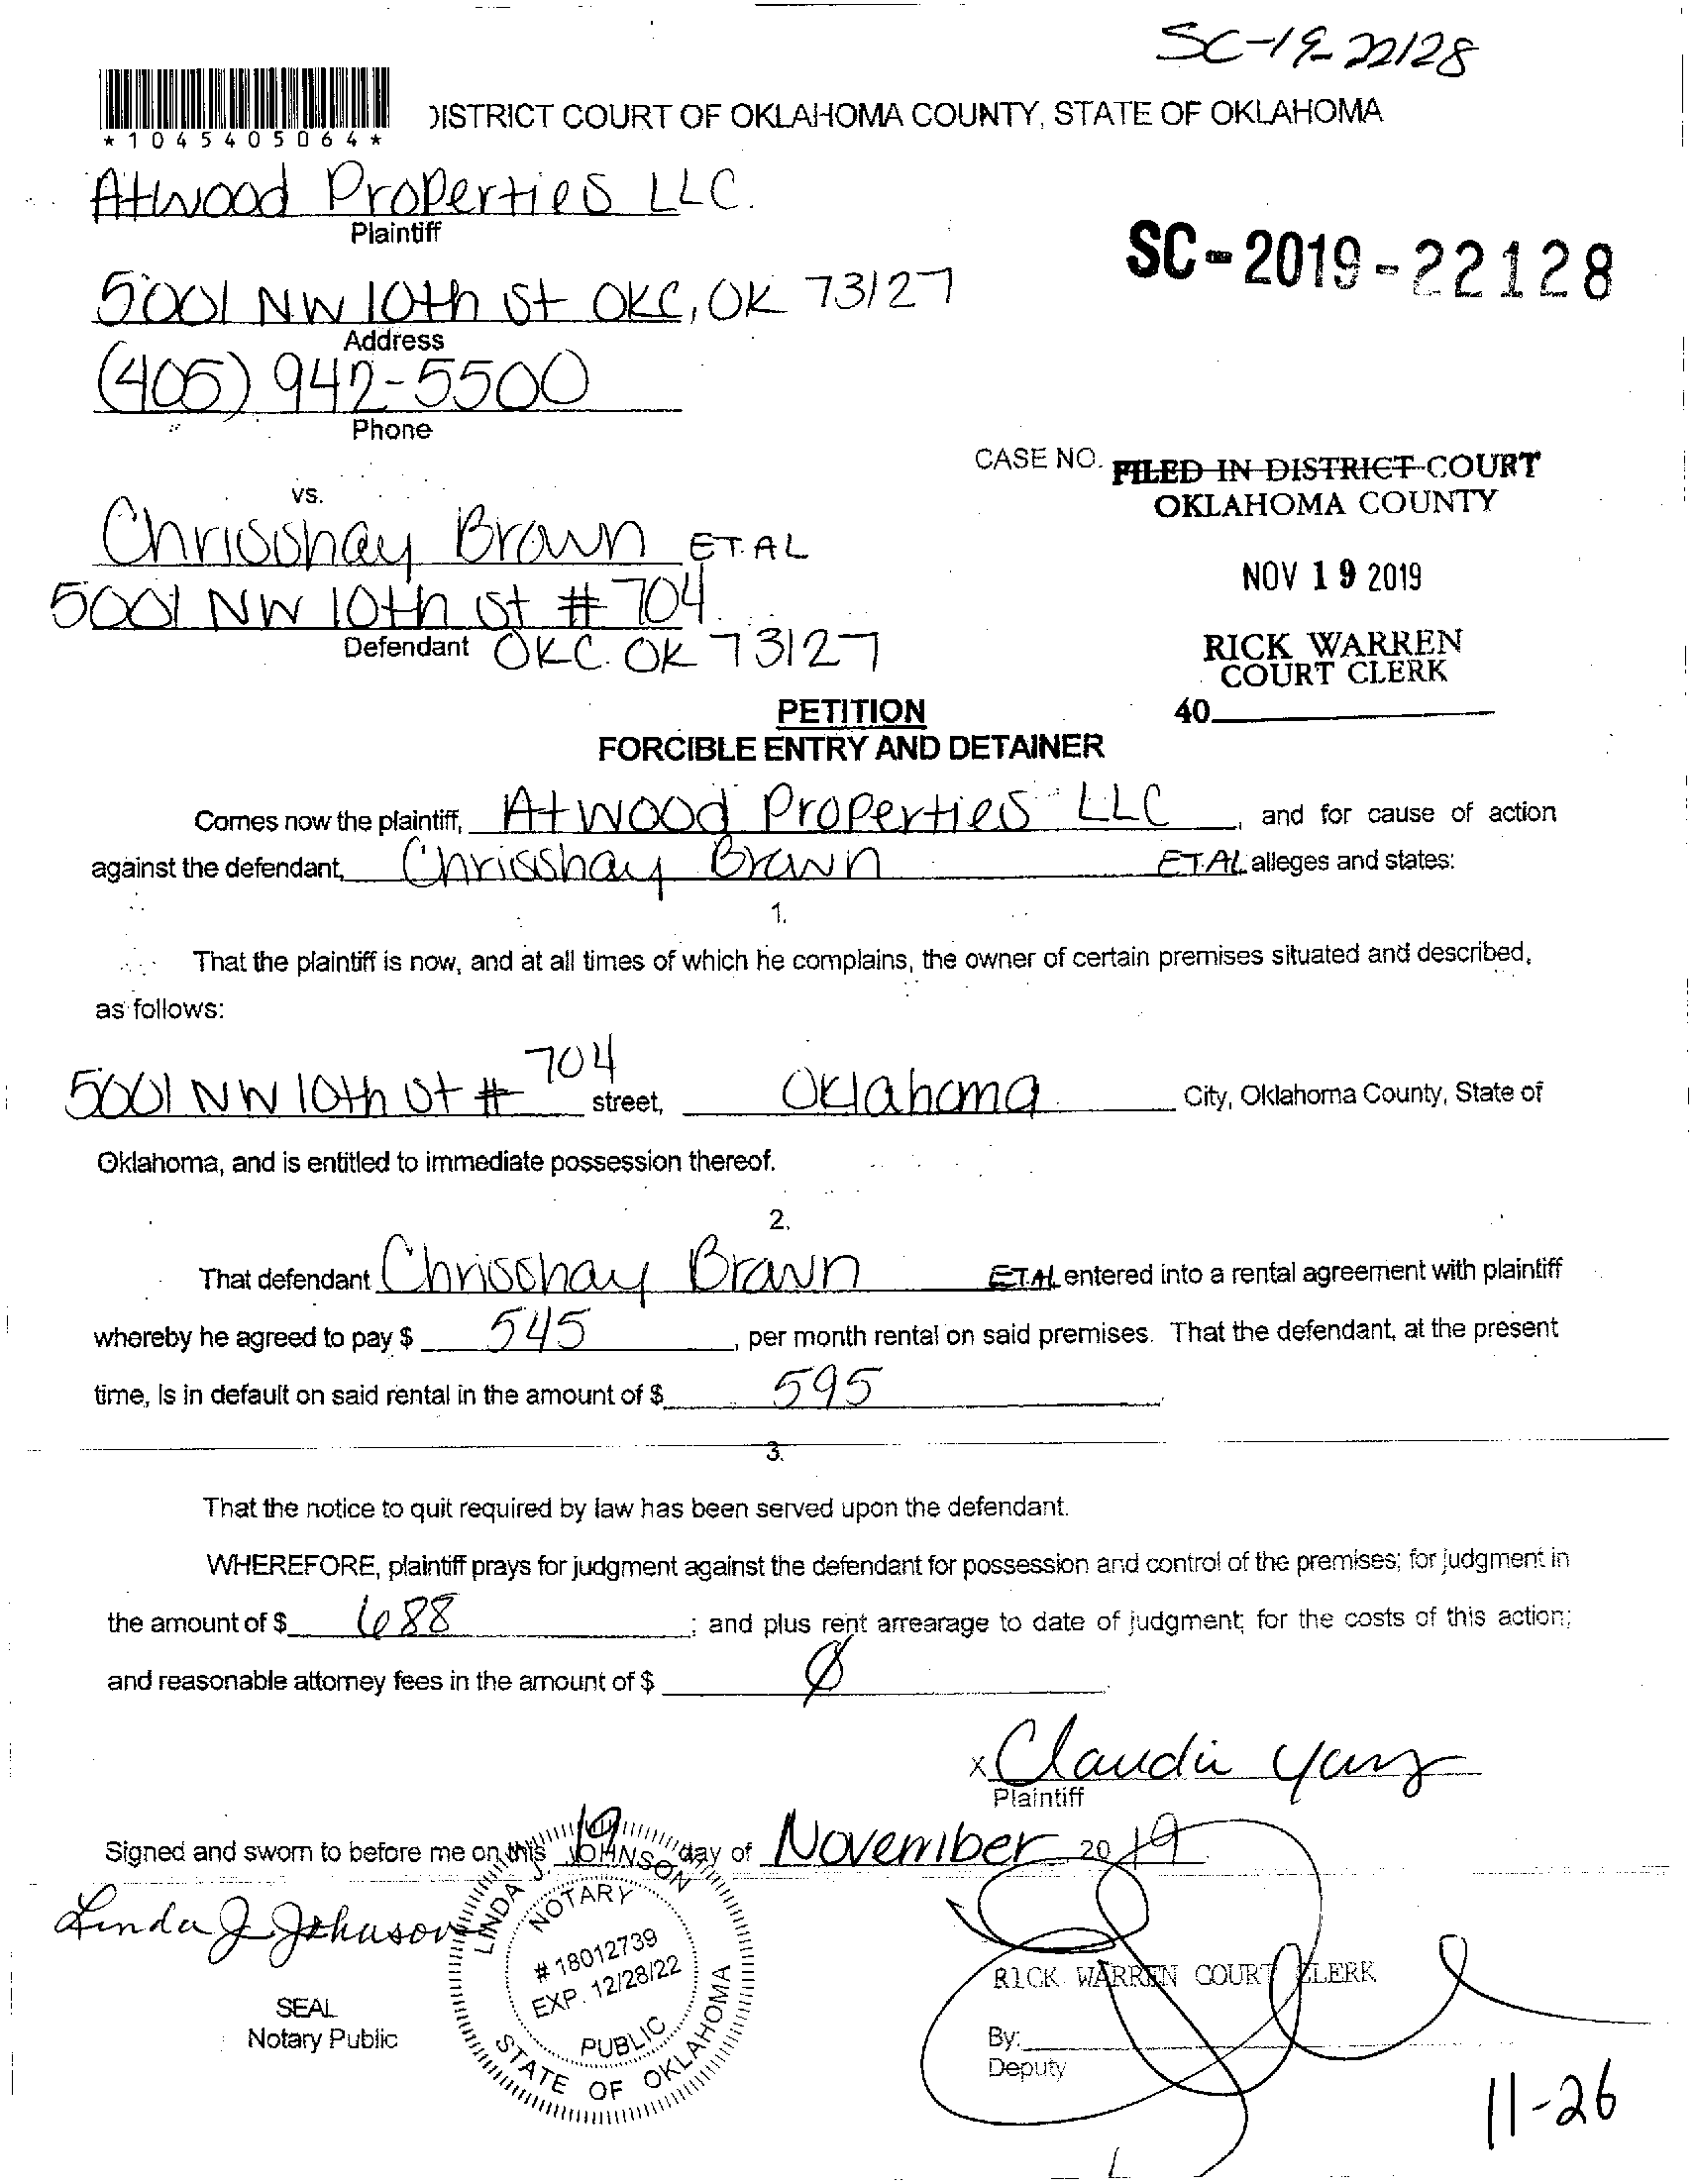 SC-19-22128
*1045405064*
DISTRICT COURT OF OKLAHOMA COUNTY, STATE OF OKLAHOMA
Atwood Properties LLC.
Plaintiff
SC-2019-22128
5001 NW 10th St OKC, OK 73127
Address
(405) 942-5500
Phone
CASE NO. FILED IN DISTRICT COURT
OKLAHOMA COUNTY
vs.
Chrisshay Brown ET. AL
NOV 19 2019
5001 NW 10th St # 704
Defendant OKC. OK 73127
RICK WARREN
COURT CLERK
40
PETITION
FORCIBLE ENTRY AND DETAINER
Comes now the plaintiff, Atwood Properties LLC, and for cause of action
against the defendant, Chrisshay Brown ET.AL alleges and states:
1.
That the plaintiff is now, and at all times of which he complains, the owner of certain premises situated and described,
as follows:
5001 NW 10th St # 704 street, Oklahoma City, Oklahoma County, State of
Oklahoma, and is entitled to immediate possession thereof.
2.
That defendant Chrisshay Brown ET.AL entered into a rental agreement with plaintiff
whereby he agreed to pay $ 545, per month rental on said premises. That the defendant, at the present
time, is in default on said rental in the amount of $ 595
3.
That the notice to quit required by law has been served upon the defendant.
WHEREFORE, plaintiff prays for judgment against the defendant for possession and control of the premises; for judgment in
the amount of $ 688; and plus rent arrearage to date of judgment; for the costs of this action;
and reasonable attorney fees in the amount of $ Ø
x Claudia
Plaintiff
Signed and sworn to before me on this 19 day of November 2019
Linda J Johnson
LINDA J. JOHNSON
NOTARY
# 18012739
EXP. 12/28/22
PUBLIC
STATE OF OKLAHOMA
SEAL
Notary Public
RICK WARREN COURT CLERK
By:
Deputy
11-26